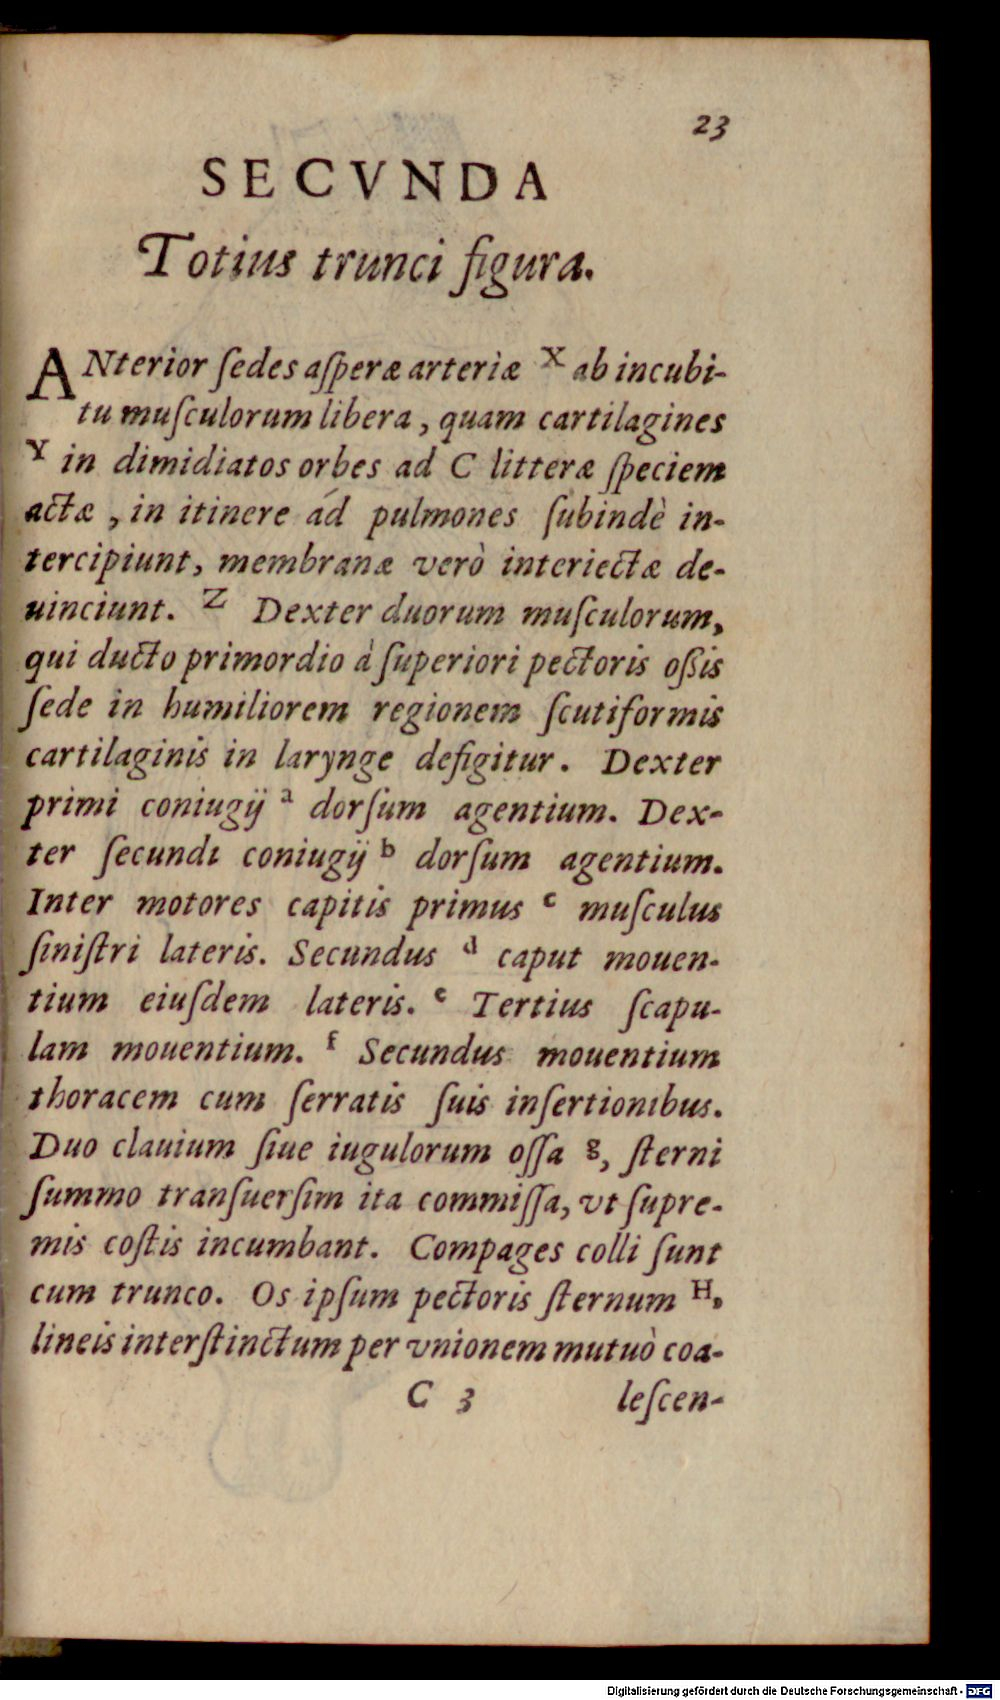 23
SECVNDA
Totius trunci figura.
ANterior ſedes aſperæ arteriæ X ab incubi-
tu muſculorum libera, quam cartilagines
Y in dimidiatos orbes ad C litteræ ſpeciem
actæ, in itinere ád pulmones ſubindè in-
tercipiunt, membranæ verò interiectæ de-
uinciunt. Z Dexter duorum muſculorum,
qui ducto primordio à ſuperiori pectoris oßis
ſede in humiliorem regionem ſcutiformis
cartilaginis in larynge defigitur. Dexter
primi coniugij a dorſum agentium. Dex-
ter ſecundi coniugij b dorſum agentium.
Inter motores capitis primus c muſculus
ſiniſtri lateris. Secundus d caput mouen-
tium eiuſdem lateris. e Tertius ſcapu-
lam mouentium. f Secundus mouentium
thoracem cum ſerratis ſuis inſertionibus.
Duo clauium ſiue iugulorum oſſa g, ſterni
ſummo tranſuerſim ita commiſſa, vt ſupre-
mis coſtis incumbant. Compages colli ſunt
cum trunco. Os ipſum pectoris ſternum H,
lineis interſtinctum per vnionem mutuò coa-
C 3 leſcen-
Digitalisierung gefördert durch die Deutsche Forschungsgemeinschaft - DFG